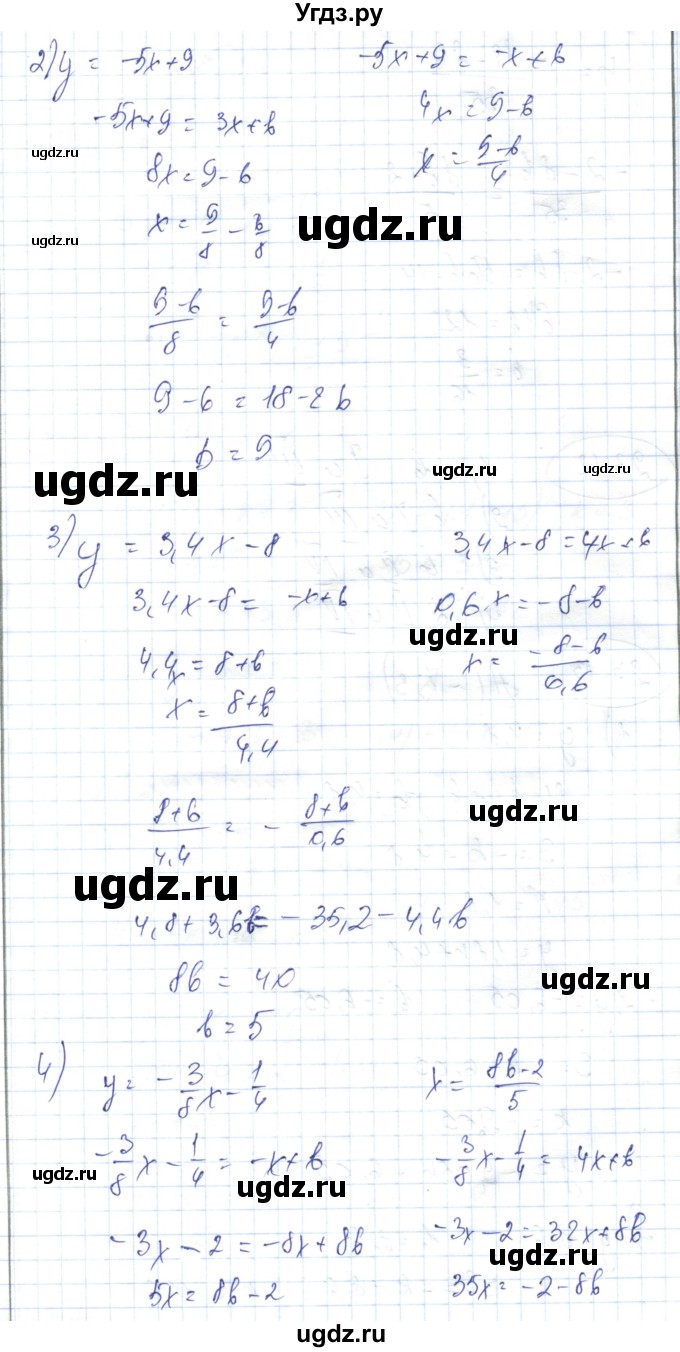 Угдз.ру
2) y = -5x+9
-5x+9 = -x+b
-5x+9 = 3x+b
4x = 9-b
ugdz.ru
8x = 9-b
x = 9-b/4
x = 9/8 - b/8
ugdz.ru
ugdz.ru
9-b/8 = 9-b/4
9-b = 18-2b
b = 9
ugdz.ru
ugdz.ru
ugdz.ru
3) y = 3,4x-8
3,4x-8 = 4x+b
3,4x-8 = -x+b
0,6x = -8-b
ugdz.ru
4,4x = 8+b
x = -8-b/0,6
x = 8+b/4,4
ugdz.ru
8+b/4,4 = - 8+b/0,6
ugdz.ru
4,8+3,6b = -35,2-4,4b
8b = 40
ugdz.ru
b = 5
4) y = -3/8x - 1/4
x = 8b-2/5
-3/8x - 1/4 = -x+b
-3/8x - 1/4 = 4x+b
ugdz.ru
ugdz.ru
-3x-2 = -8x+8b
-3x-2 = 32x+8b
ugdz.ru
5x = 8b-2
35x = -2-8b
ugdz.ru